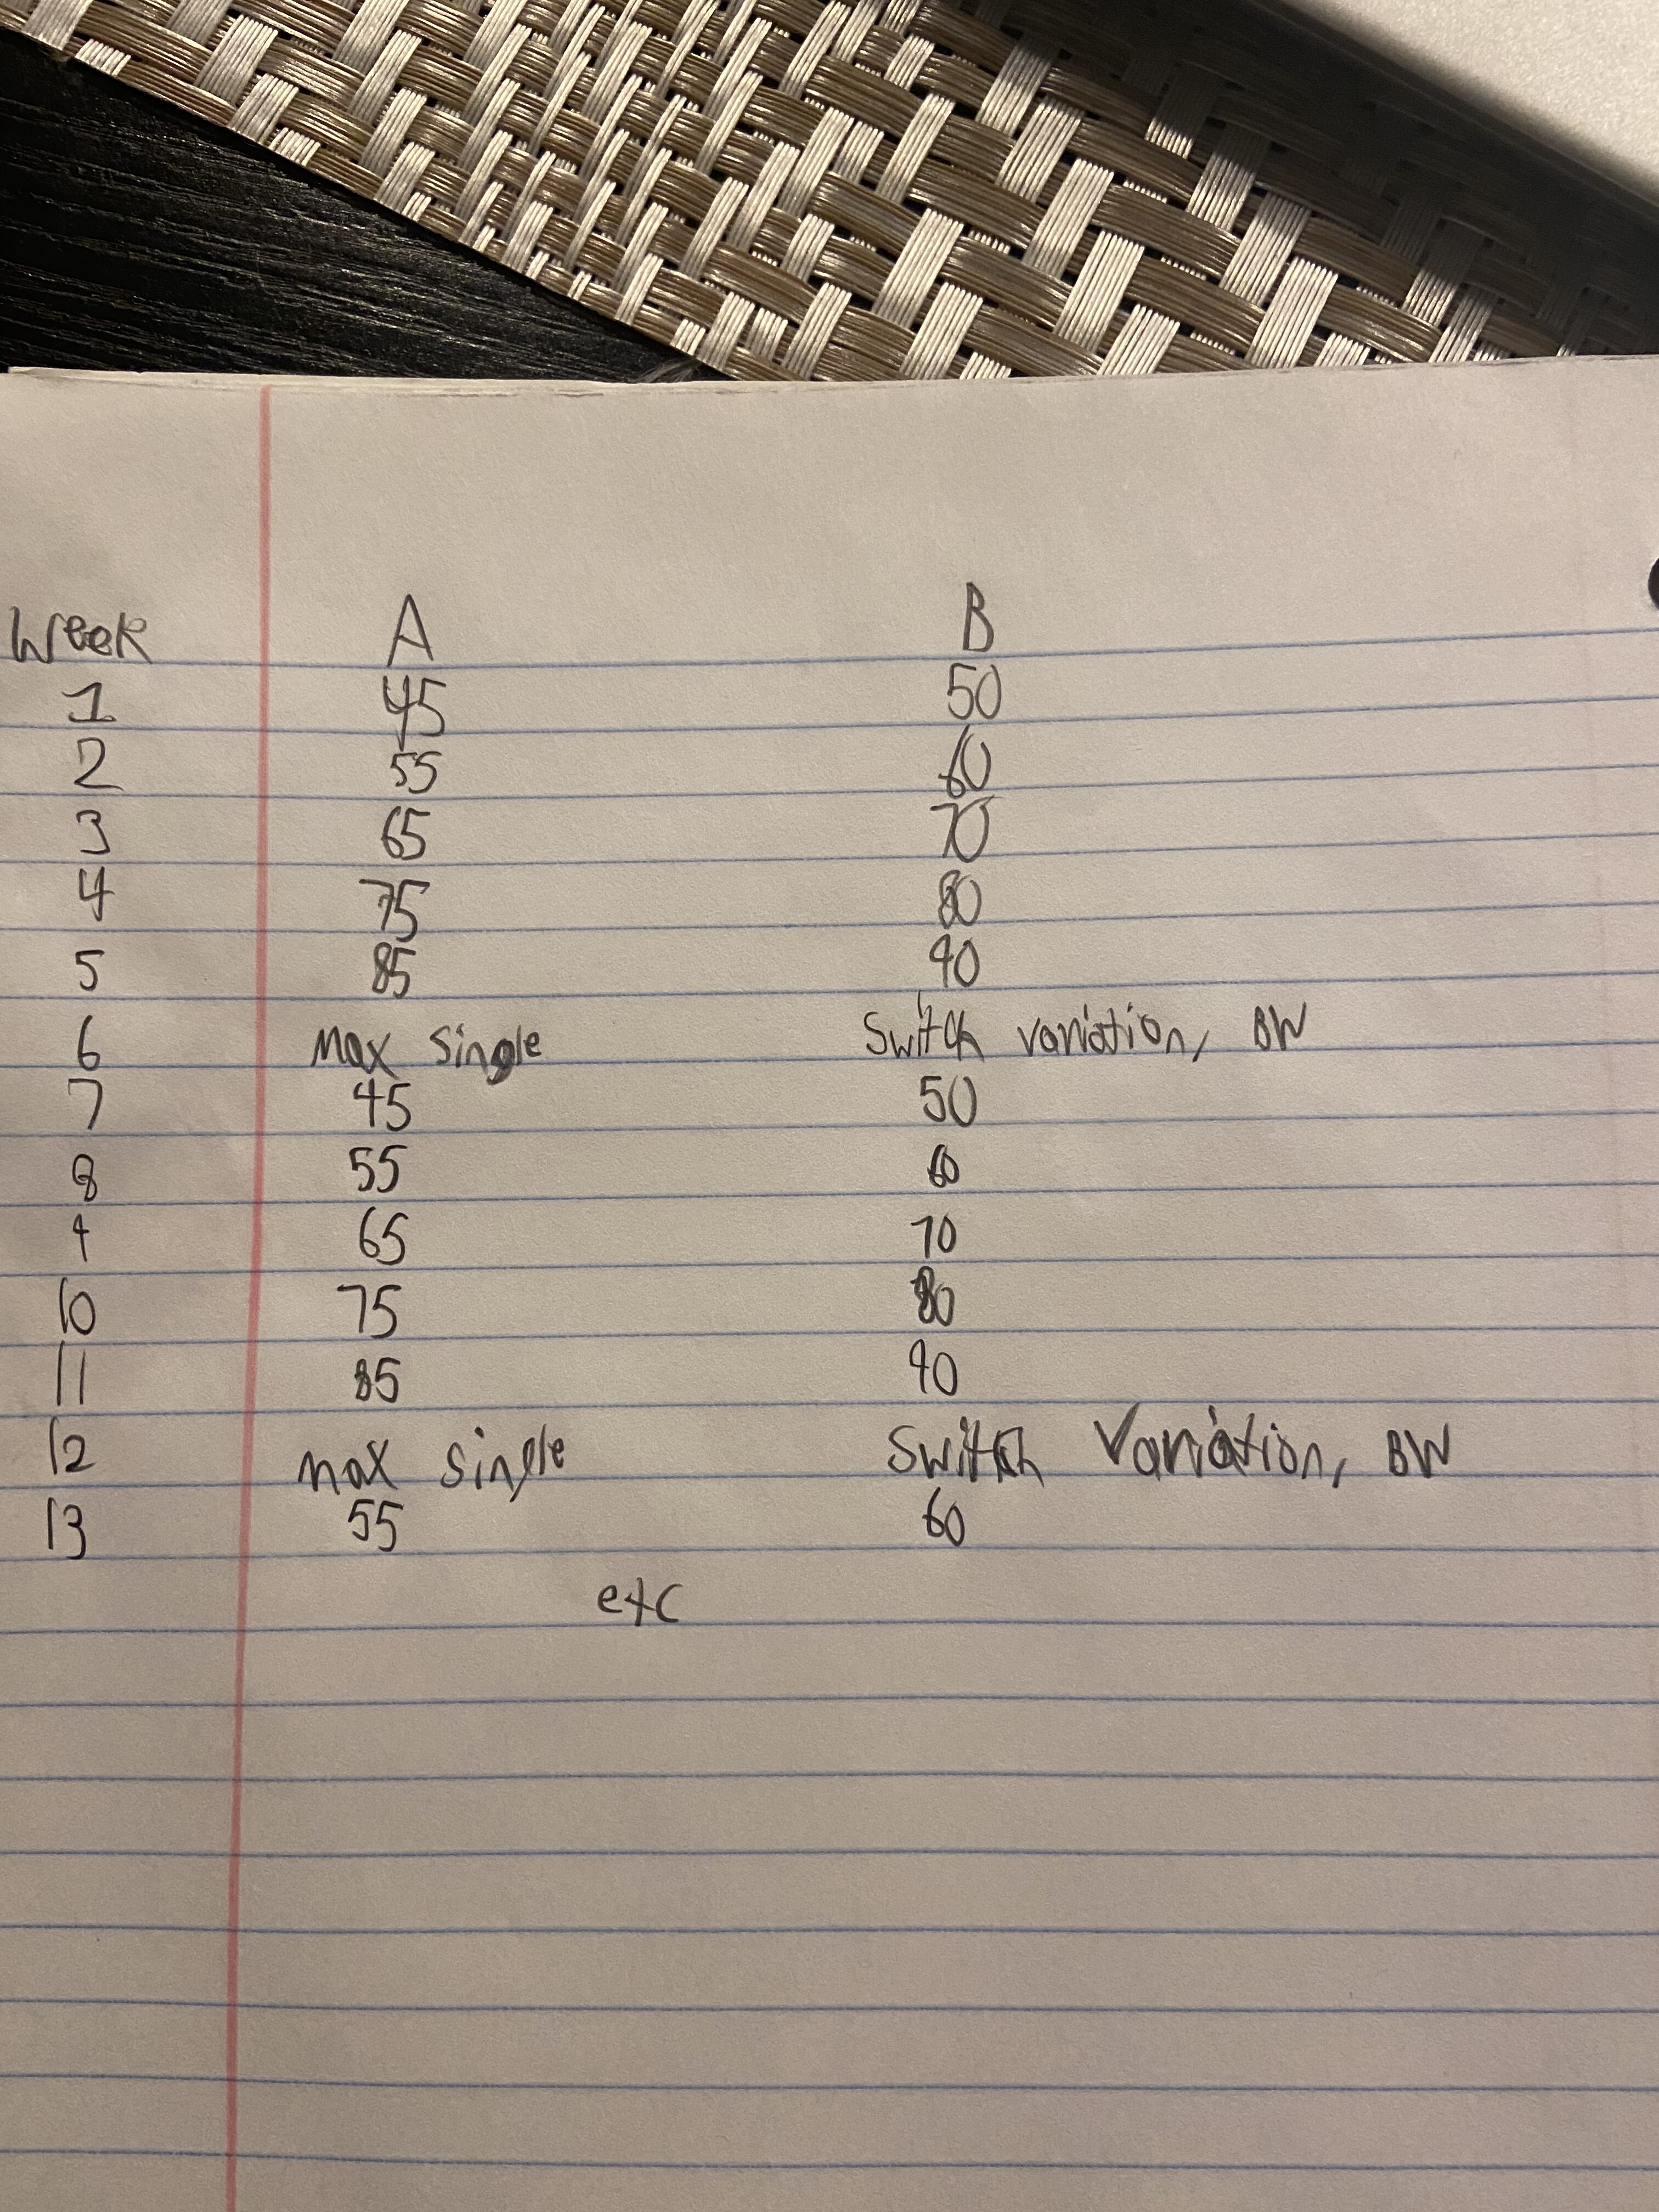 Week A B
1 45 50
2 55 60
3 65 70
4 75 80
5 85 90
6 Max single Switch variation, BW
7 45 50
8 55 60
9 65 70
10 75 80
11 85 90
12 max single Switch Variation, BW
13 55 60
etc